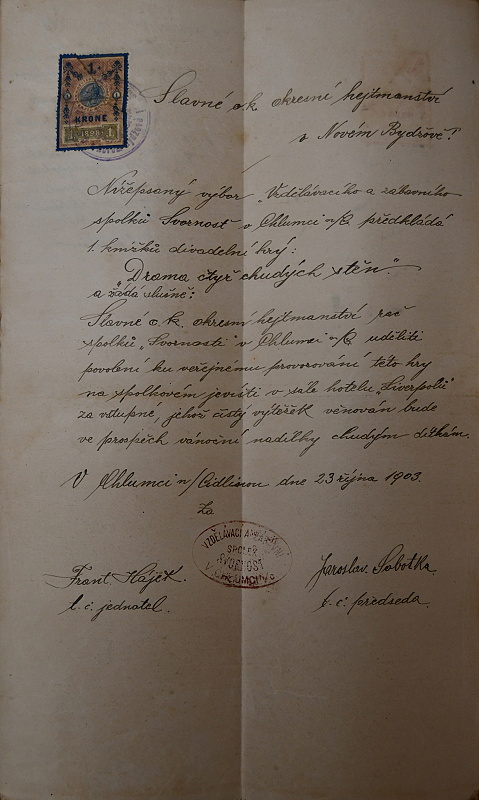 1.
KRONE
1898
Slavné c.k. okresní hejtmanství
v Novém Bydžově!
Nížepsaný výbor „Vzdělávacího a zábavního
spolku Svornost" v Chlumci n/C. předkládá
1. knížku divadelní hry:
„Drama čtyř chudých stěn."
a žádá slušně:
Slavné c.k. okresní hejtmanství rač
spolku „Svornosti" v Chlumci n/C. uděliti
povolení ku veřejnému provozování této hry
na spolkovém jevišti v sále hotelu „Liverpolu"
za vstupné, jehož čistý výtěžek věnován bude
ve prospěch vánoční nadílky chudým dítkám.
V Chlumci n/Cidlinou dne 23 října 1903.
Za
VZDĚLÁVACÍ A ZÁBAVNÍ
SPOLEK
SVORNOST
V CHLUMCI N/C
Frant. Hájek. Jaroslav Sobotka
t. č. jednatel. t. č. předseda.